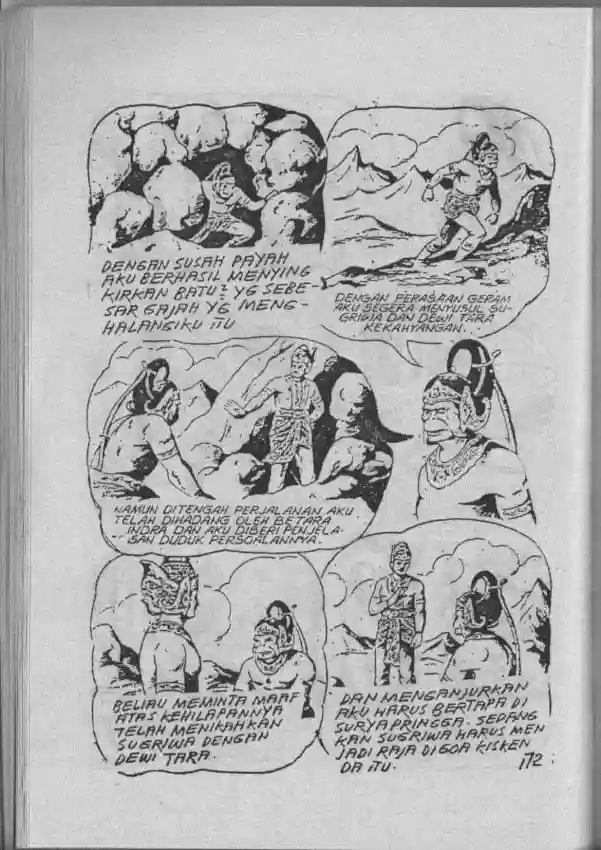 DENGAN SUSAH PAYAH
AKU BERHASIL MENYING
KIRKAN BATU2 YG SEBE-
SAR GAJAH YG MENG-
HALANGIKU ITU
DENGAN PERASAAN GERAM
AKU SEGERA MENYUSUL SU-
GRIWA DAN DEWI TARA
KEKAHYANGAN..
NAMUN DITENGAH PERJALANAN AKU
TELAH DIHADANG OLEH BETARA
INDRA DAN AKU DIBERI PENJELA-
SAN DUDUK PERSOALANNYA.
BELIAU MEMINTA MAAF
ATAS KEHILAPANNYA
TELAH MENIKAHKAN
SUGRIWA DENGAN
DEWI TARA.
DAN MENGANJURKAN
AKU HARUS BERTAPA DI
SURYAPRINGGA. SEDANG
KAN SUGRIWA HARUS MEN
JADI RAJA DI GOA KISKEN
DA ITU.
172